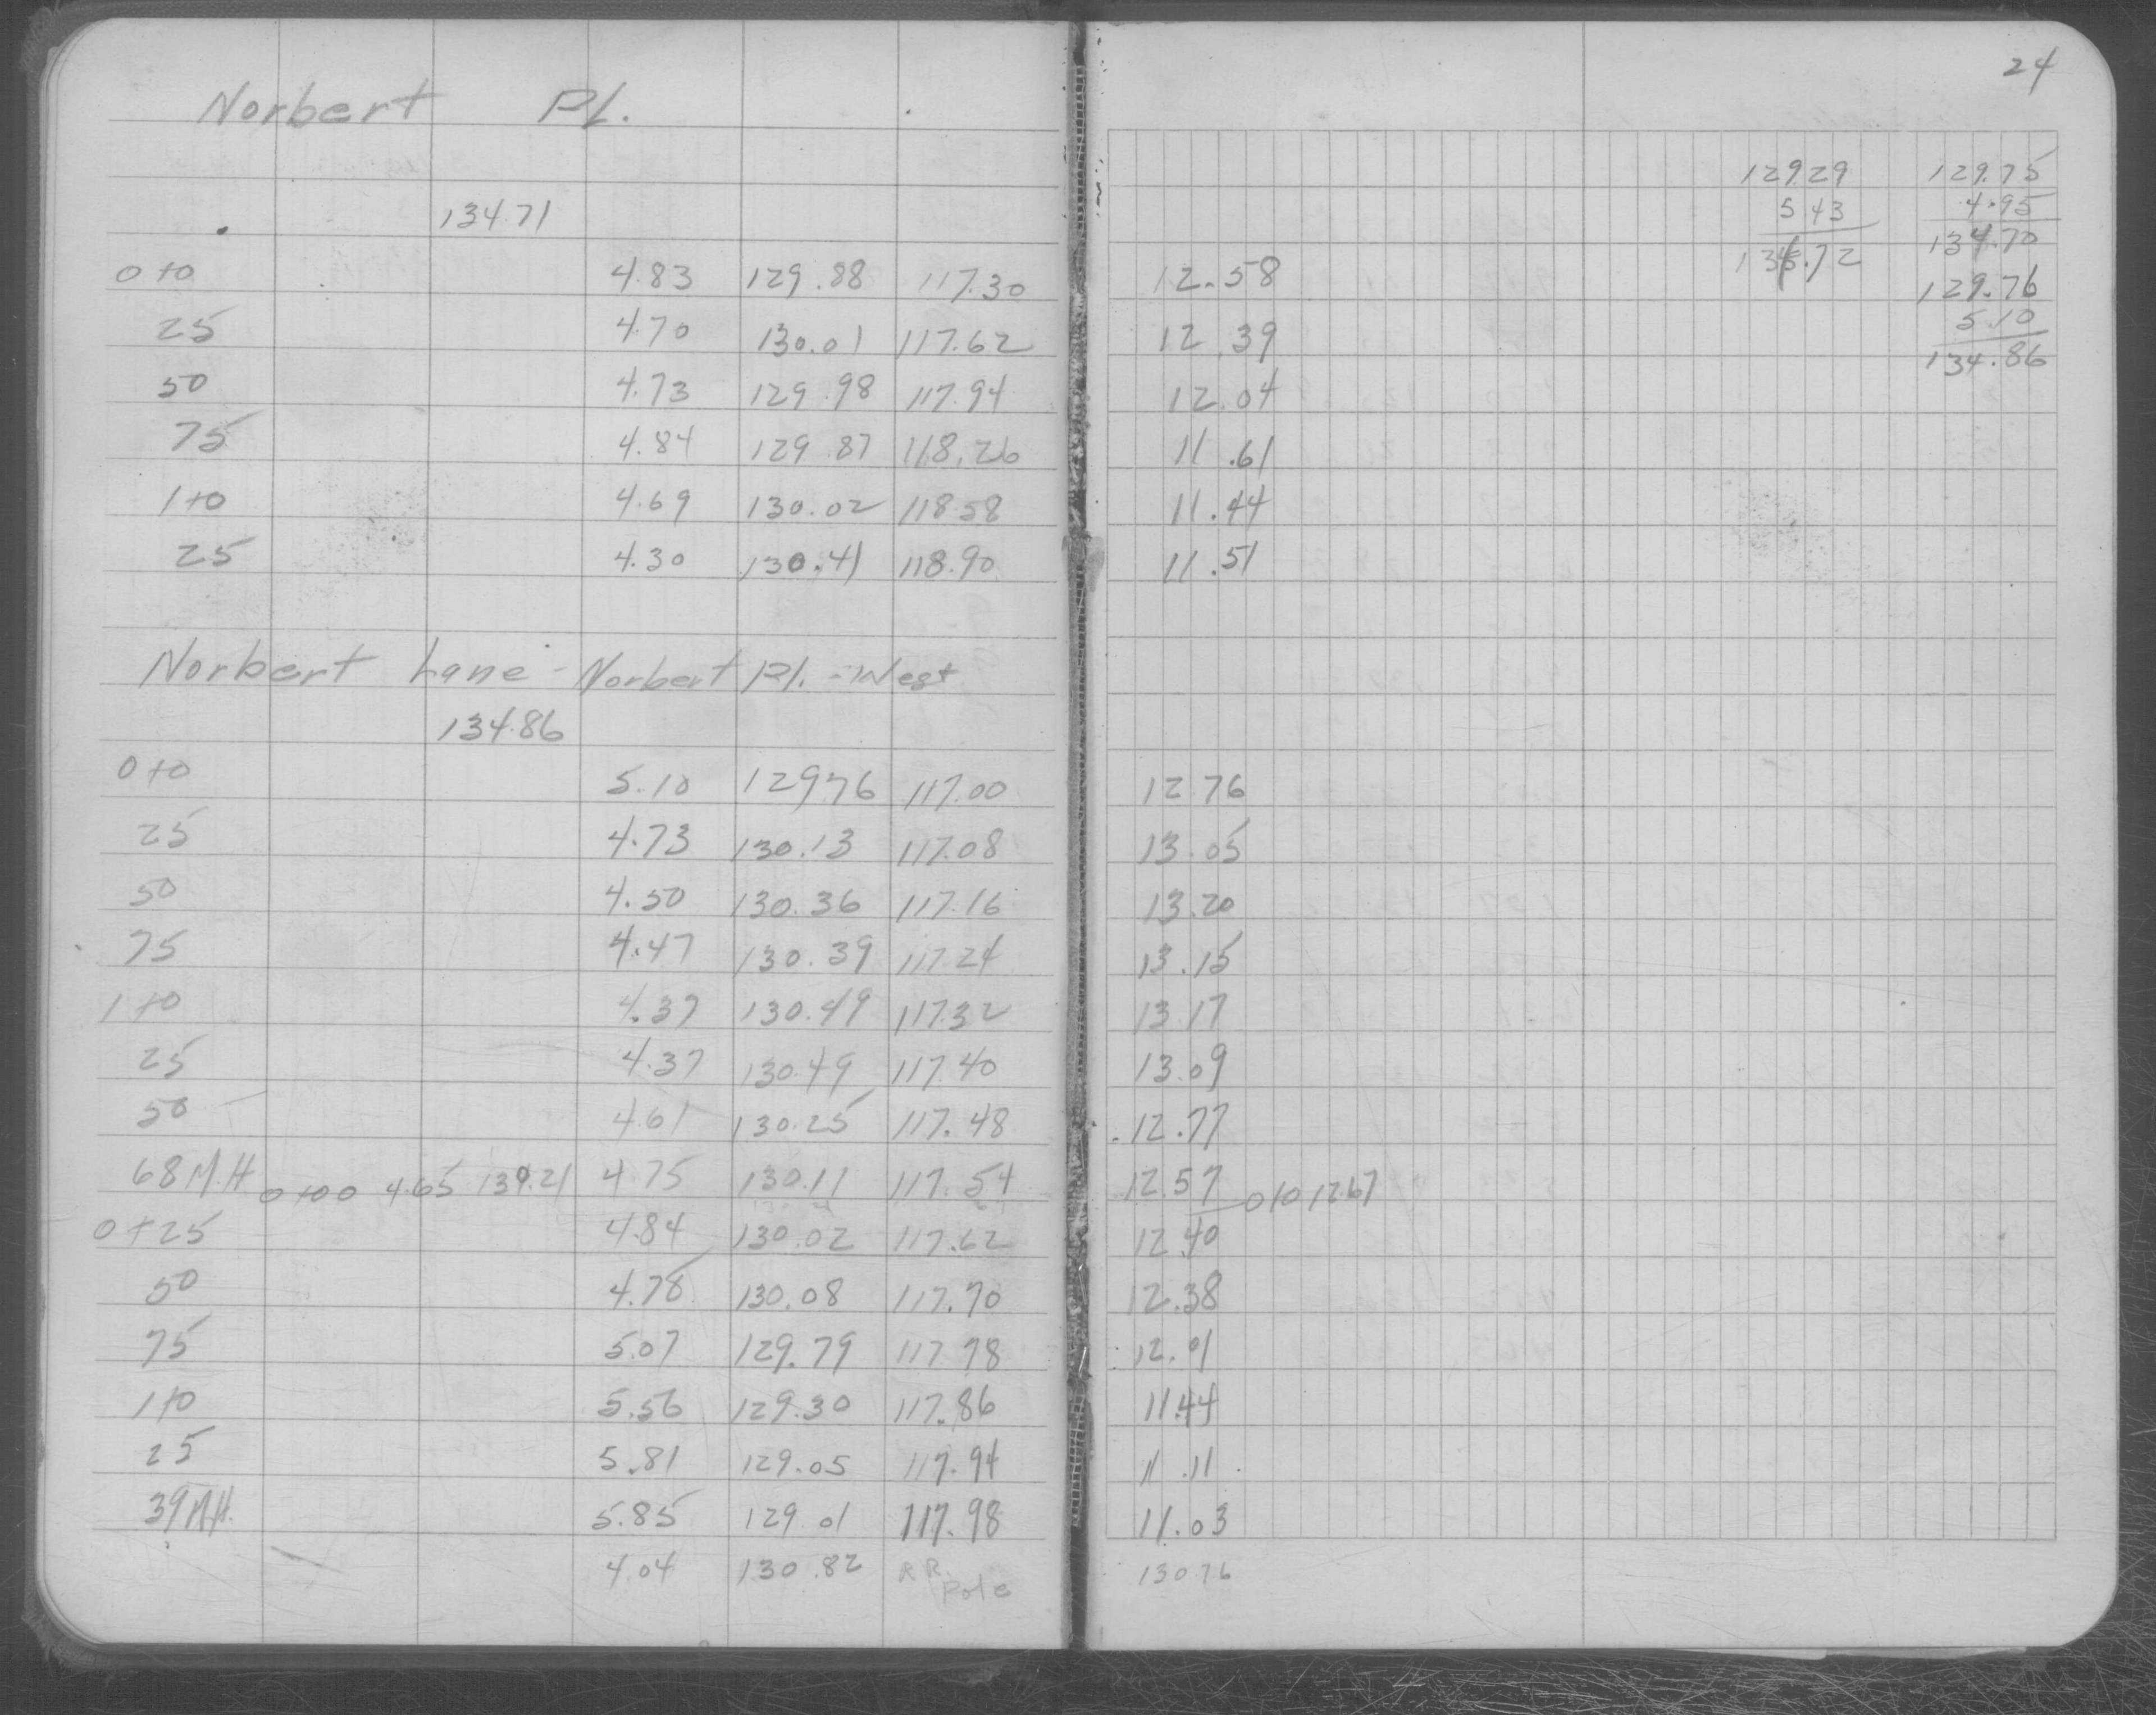 24
Norbert Pl.
129.29 129.75
134.71 5 43 4.95
134.72 134.70
0+0 4.83 129.88 117.30 12.58
129.76
25 4.70 130.01 117.62 12.39
5.10
134.86
50 4.73 129.98 117.94 12.04
75 4.84 129.87 118.26 11.61
1+0 4.69 130.02 118.58 11.44
25 4.30 130.41 118.90 11.51
Norbert Lane - Norbert Pl. - West
134.86
0+0 5.10 129.76 117.00 12 76
25 4.73 130.13 117.08 13.05
50 4.50 130.36 117.16 13.20
75 4.47 130.39 117.24 13.15
1+0 4.37 130.49 117.32 13.17
25 4.37 130.49 117.40 13.09
50 4.61 130.25 117.48 12.77
68 M.H 0+00 4.65 134.21 4.75 130.11 117.54 12.57 0/0 12.67
0+25 4.84 130.02 117.62 12.40
50 4.78 130.08 117.70 12.38
75 5.07 129.79 117.78 12.01
1+0 5.56 129.30 117.86 11.44
25 5.81 129.05 117.94 11.11
39 M.H. 5.85 129.01 117.98 11.03
4.04 130.82 R.R. Pole 130 76